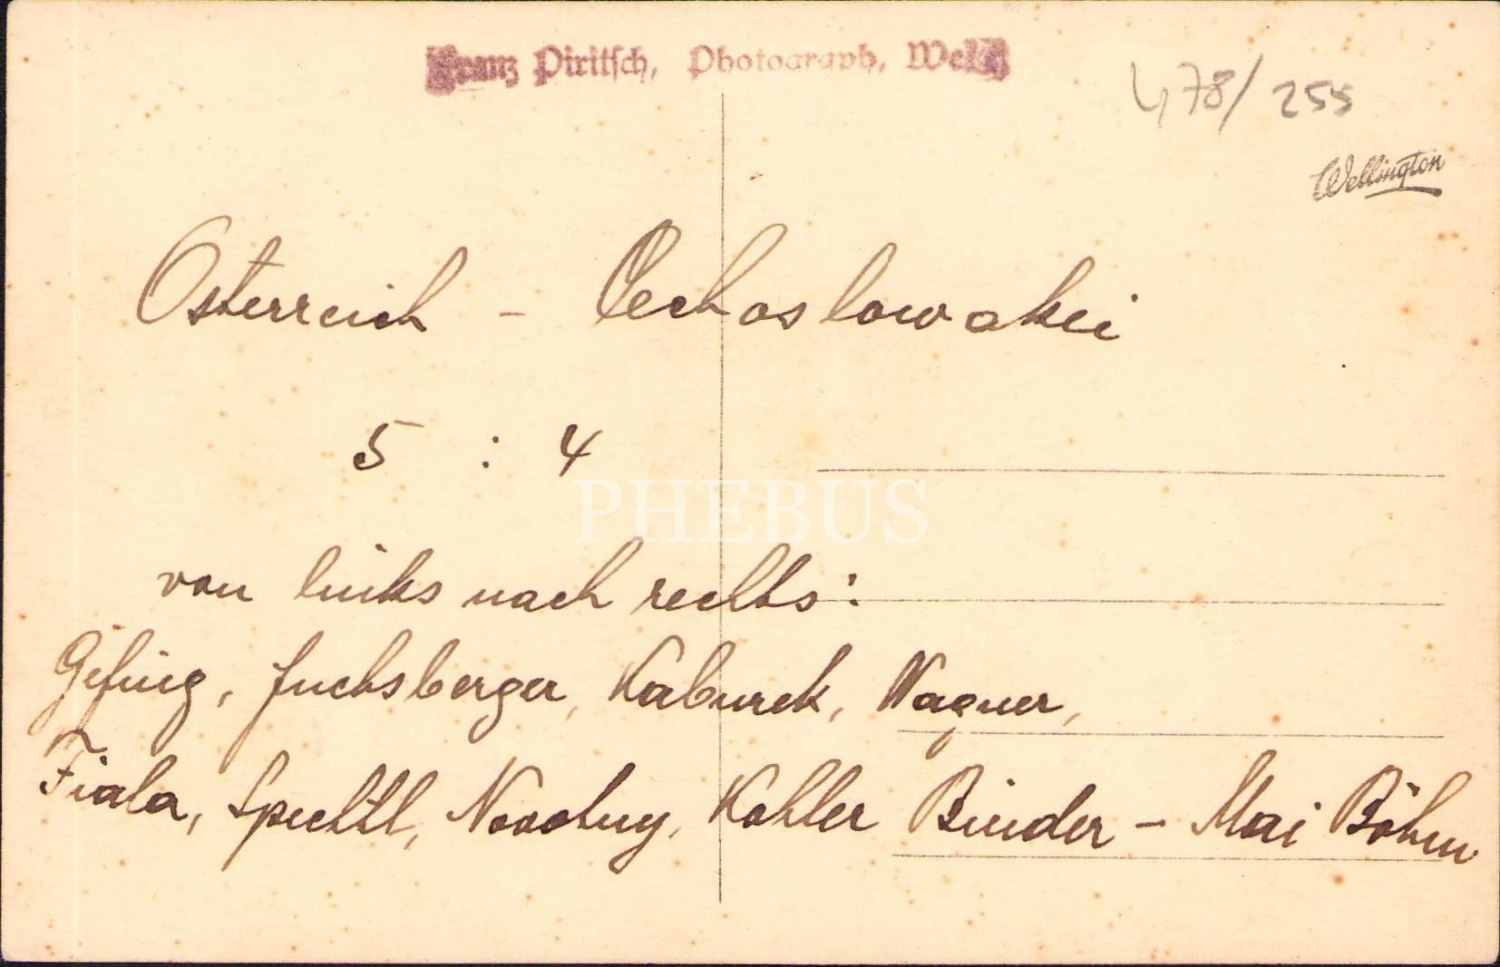 Franz Piritsch, Photograph, Wels
478/255
Wellington
Österreich - Cechoslowakei
5 : 4
PHEBUS
von links nach rechts:
Gefing, Fuchsberger, Kaburek, Wagner,
Fiala, Spechtl, Novotny, Kohler Binder - Mai Böhm